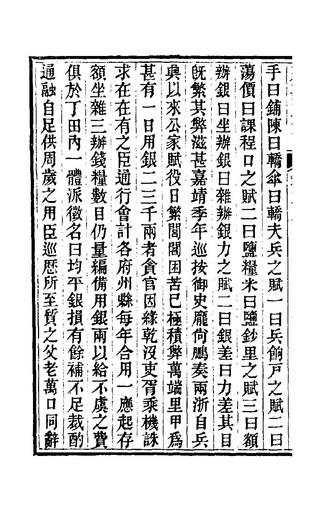 手曰鋪陳曰轎傘曰轎夫兵之賦一曰兵餉戶之賦二曰
蕩價曰課程口之賦二曰鹽糧米曰鹽鈔里之賦三曰額
辦銀曰坐辦銀曰雜辦銀力之賦二曰銀差曰力差其目
旣繁其弊滋甚嘉靖季年巡按御史龐尙鵬奏兩浙自兵
典以來公家賦役日繁閭閻困苦巳極積弊萬端里甲爲
甚有一日用銀二三千兩者貪官因緣乾沒吏胥乘機誅
求在在有之臣通行會計各府州縣每年合用一應起存
額坐雜三辦錢糧數目仍量編備用銀兩以給不虞之費
俱於丁田內一體派徵名曰均平銀損有餘補不足裁酌
通融自足供周歲之用臣巡歷所至質之父老萬口同辭